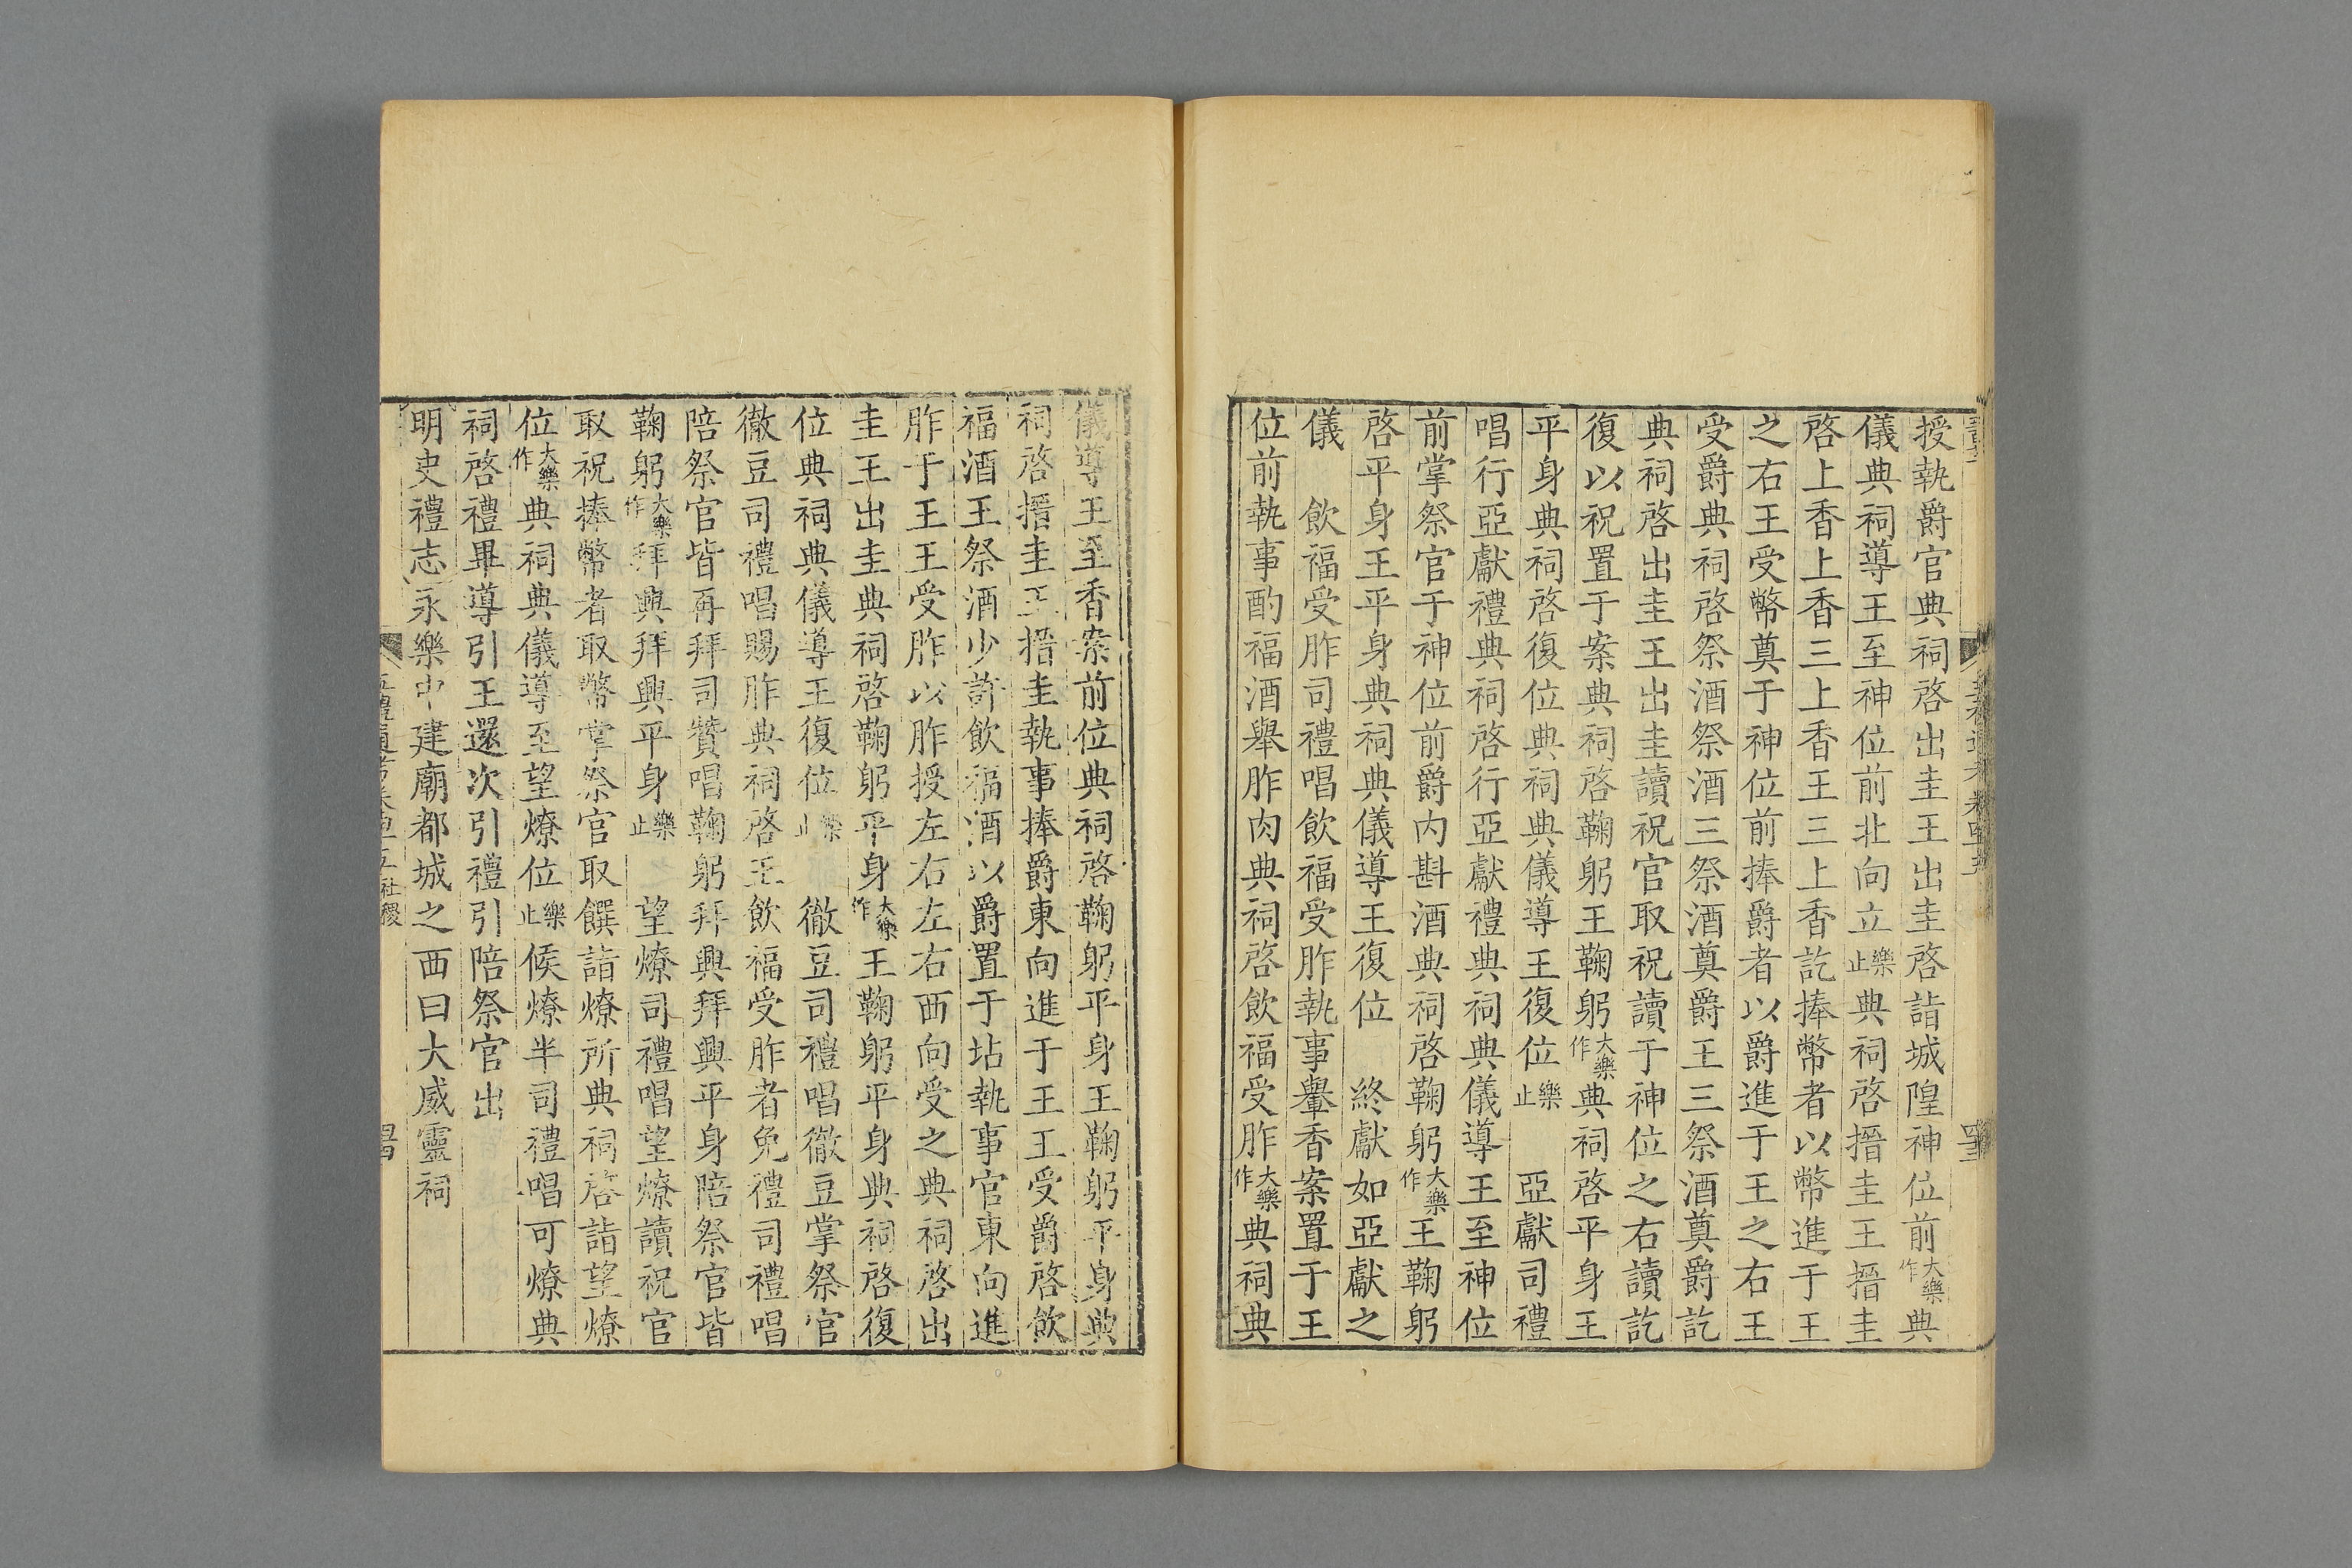 授執爵官典祠啓出圭王出圭啓詣城隍神位前大樂作典
儀典祠導王至神位前北向立樂止典祠啓搢圭王搢圭
啓上香上香三上香王三上香訖捧幣者以幣進于王
之右王受幣奠于神位前捧爵者以爵進于王之右王
受爵典祠啓祭酒祭酒三祭酒奠爵王三祭酒奠爵訖
典祠啓出圭王出圭讀祝官取祝讀于神位之右讀訖
復以祝置于案典祠啓鞠躬王鞠躬大樂作典祠啓平身王
平身典祠啓復位典祠典儀導王復位樂止　亞獻司禮
唱行亞獻禮典祠啓行亞獻禮典祠典儀導王至神位
前掌祭官于神位前爵内斟酒典祠啓鞠躬大樂作王鞠躬
啓平身王平身典祠典儀導王復位　終獻如亞獻之
儀　飲福受胙司禮唱飲福受胙執事轝香案置于王
位前執事酌福酒舉胙肉典祠啓飲福受胙大樂作典祠典
儀導王至香案前位典祠啓鞠躬平身王鞠躬平身典
祠啓搢圭王搢圭執事捧爵東向進于王王受爵啓飲
福酒王祭酒少許飲福酒以爵置于坫執事官東向進
胙于王王受胙以胙授左右左右西向受之典祠啓出
圭王出圭典祠啓鞠躬平身大樂作王鞠躬平身典祠啓復
位典祠典儀導王復位樂止　徹豆司禮唱徹豆掌祭官
徹豆司禮唱賜胙典祠啓王飲福受胙者免禮司禮唱
陪祭官皆再拜司贊唱鞠躬拜興拜興平身陪祭官皆
鞠躬大樂作拜興拜興平身樂止　望燎司禮唱望燎讀祝官
取祝捧幣者取幣掌祭官取饌詣燎所典祠啓詣望燎
位大樂作典祠典儀導至望燎位樂止候燎半司禮唱可燎典
祠啓禮畢導引王還次引禮引陪祭官出
明史禮志永樂中建廟都城之西曰大威靈祠